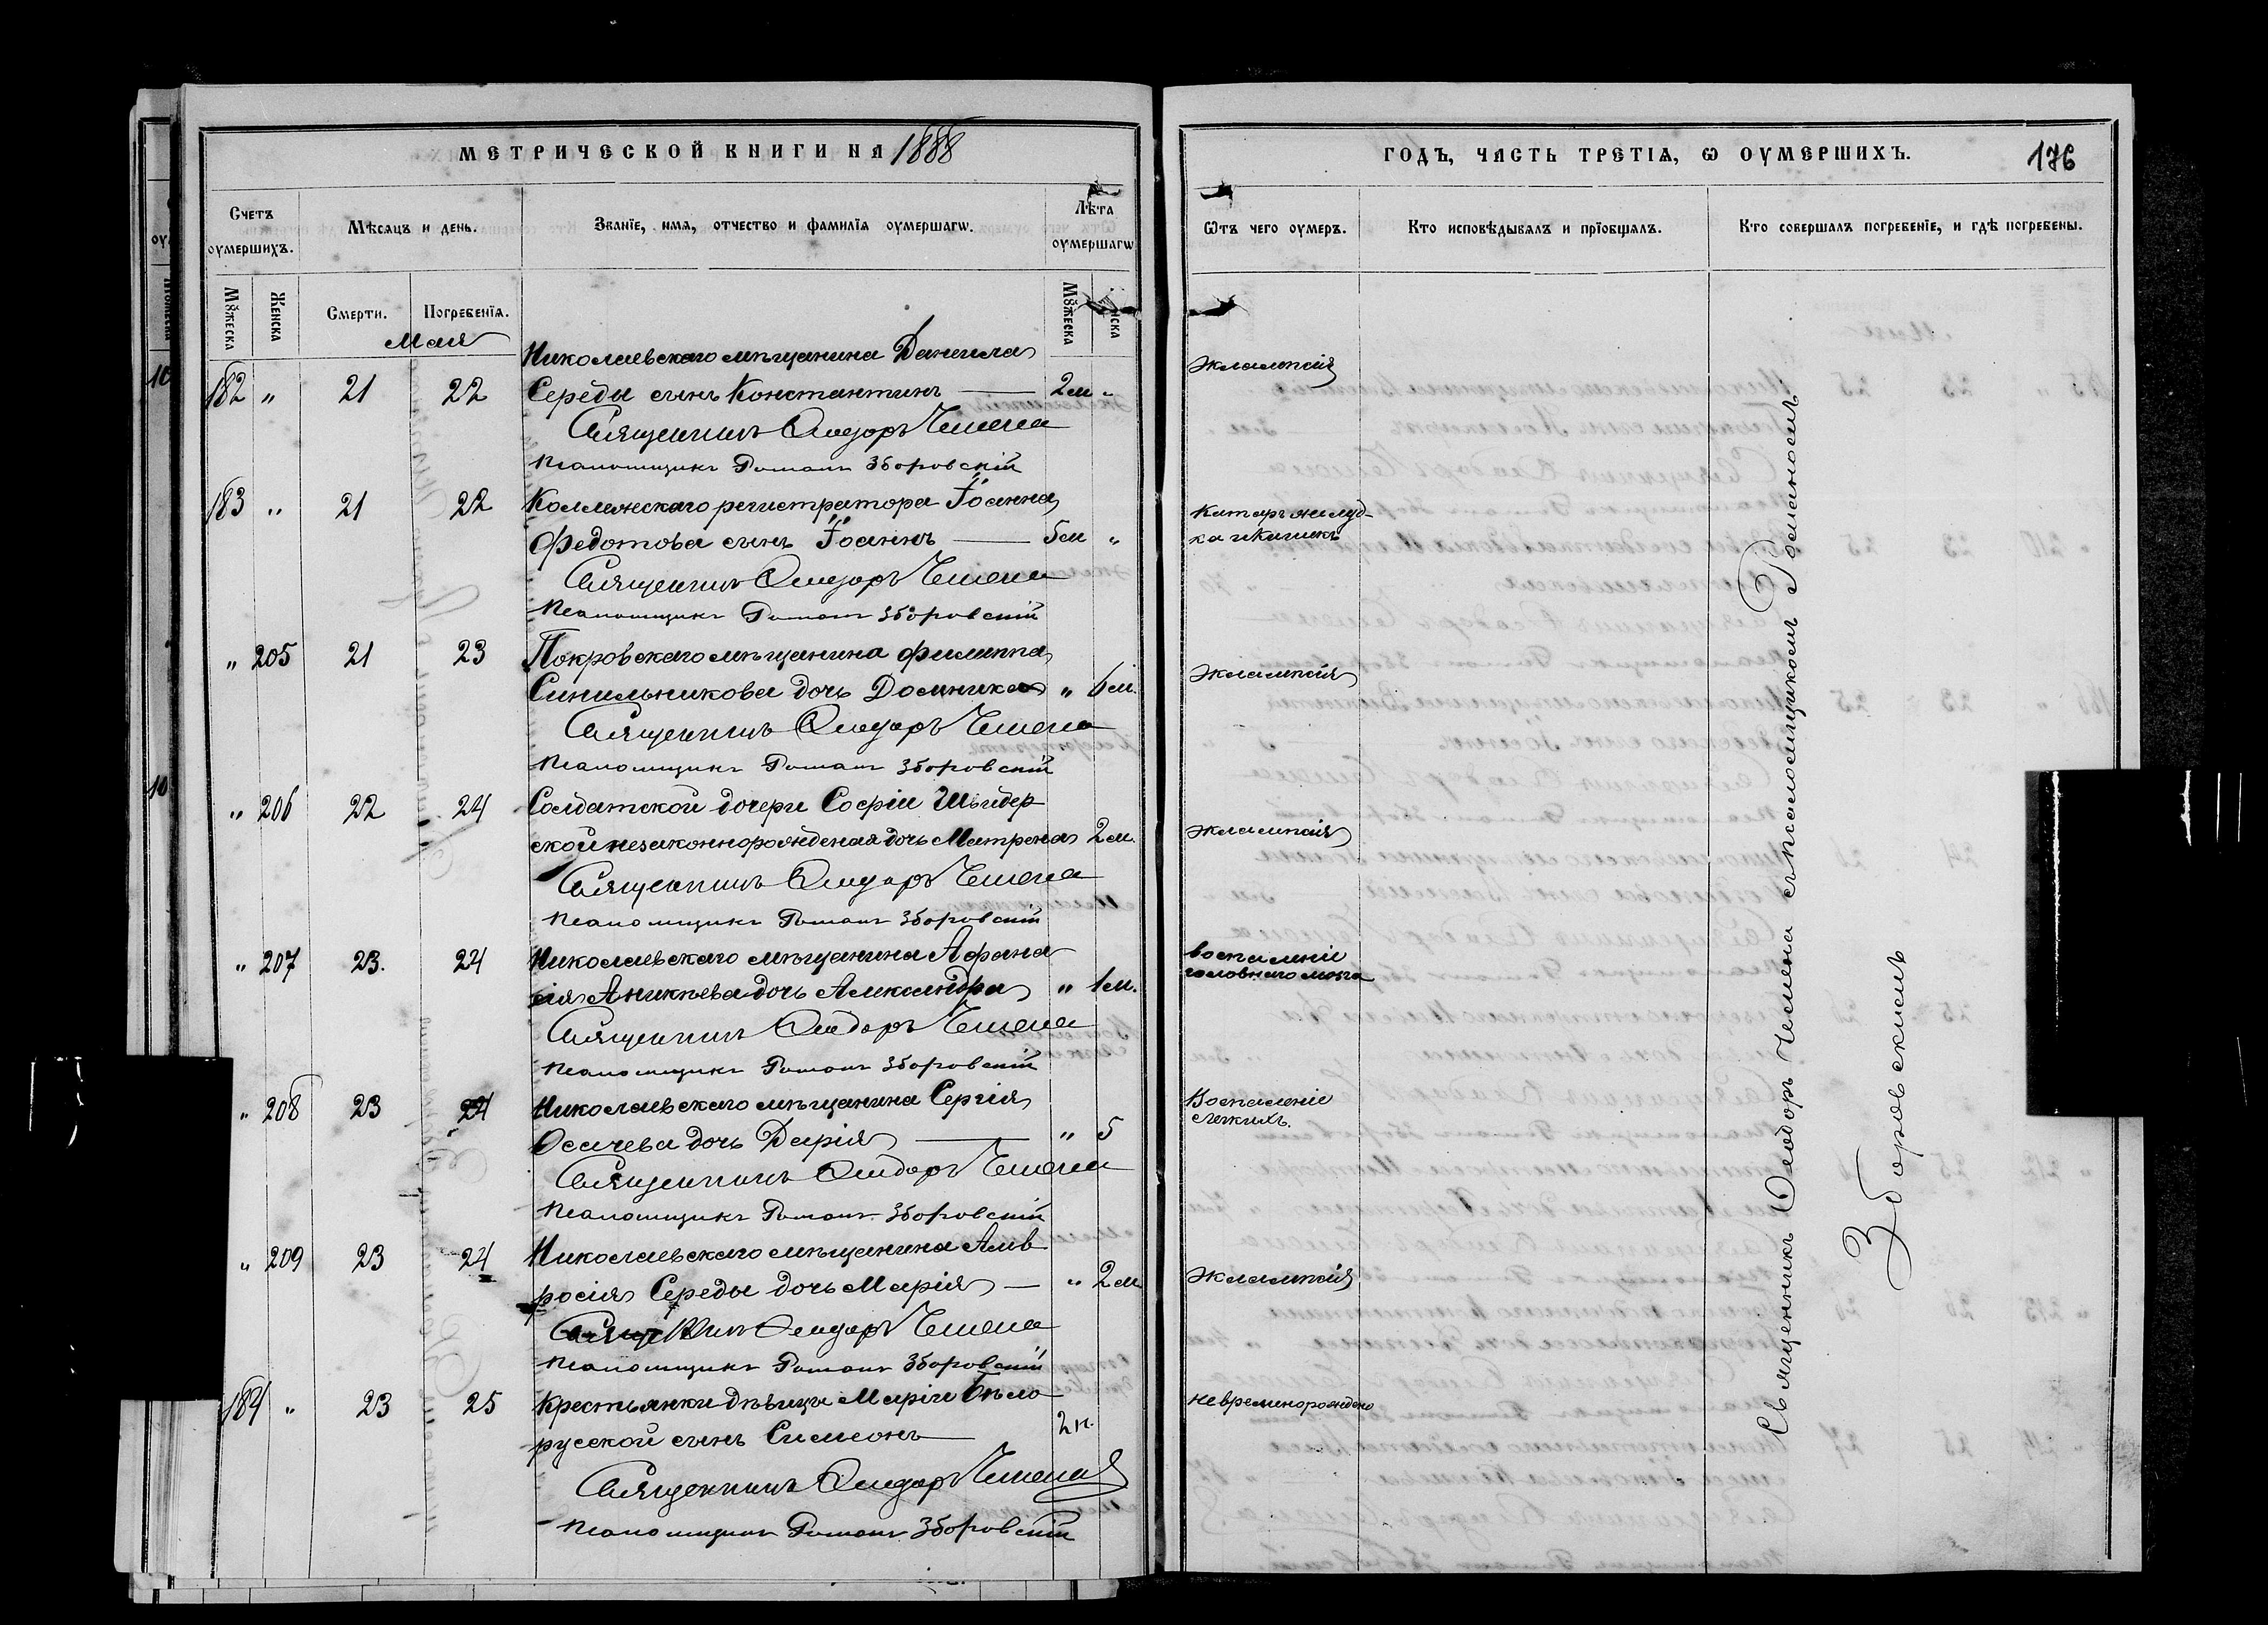 МЕТРИЧЕСКОЙ КНИГИ НА 1888
Счетъ оумершихъ.
Мѣсяцъ и день.
Званїе, имя, отчество и фамилїя оумершагѡ.
Лѣта оумершагѡ
Мꙋжеска
Женска
Смерти.
Погребенїя.
Мꙋжеска
Мая
Николаевскаго мѣщанина Даниила
182 " 21 22 Середы сынъ Константинъ — 2 м "
Священникъ Ѳеодоръ Чемена
Псаломщикъ Романъ Зборовскій
183 " 21 22 Коллежскаго регистратора Іоанна
Федотова сынъ Іоаннъ — 5 м "
Священникъ Ѳеодоръ Чемена
Псаломщикъ Романъ Зборовскій
" 205 21 23 Покровскаго мѣщанина Филиппа
Синильникова дочь Домника " 6 м.
Священникъ Ѳеодоръ Чемена
Псаломщикъ Романъ Зборовскій
" 206 22 24 Солдатской дочери Софіи Швидер
ской незаконнорожденая дочь Матрена 2 м.
Священникъ Ѳеодоръ Чемена
Псаломщикъ Романъ Зборовскій
" 207 23. 24 Николаевскаго мѣщанина Афана
сія Аникѣева дочь Александра " 1 м.
Священникъ Ѳеодоръ Чемена
Псаломщикъ Романъ Зборовскій
" 208 23 24 Николаевскаго мѣщанина Сергія
Осачева дочь Дарія — " 5
Священникъ Ѳеодоръ Чемена
Псаломщикъ Романъ Зборовскій
" 209 23 24 Николаевскаго мѣщанина Амв
росія Середы дочь Марія — " 2 м
Священникъ Ѳеодоръ Чемена
Псаломщикъ Романъ Зборовскій
184 " 23 25 Крестьянки дѣвицы Маріи Бѣло
русской сынъ Симеонъ — 2 н.
Священникъ Ѳеодоръ Чемена
Псаломщикъ Романъ Зборовскій
ГОДЪ, ЧАСТЬ ТРЕТІЯ, Ѡ ОУМЕРШИХЪ.
176
Ѿтъ чего оумеръ.
Кто исповѣдывалъ и прїобщалъ.
Кто совершалъ погребенїе, и гдѣ погребены.
Эклампсія
Катаръ желуд-
ка и кишекъ
Эклампсія
Эклампсія
Воспаленіе
головнаго мозга
Воспаленіе
легкихъ.
Эклампсія
Невременорождено
Священникъ Ѳеодоръ Чемена съ псаломщикомъ Романомъ
Зборовскимъ